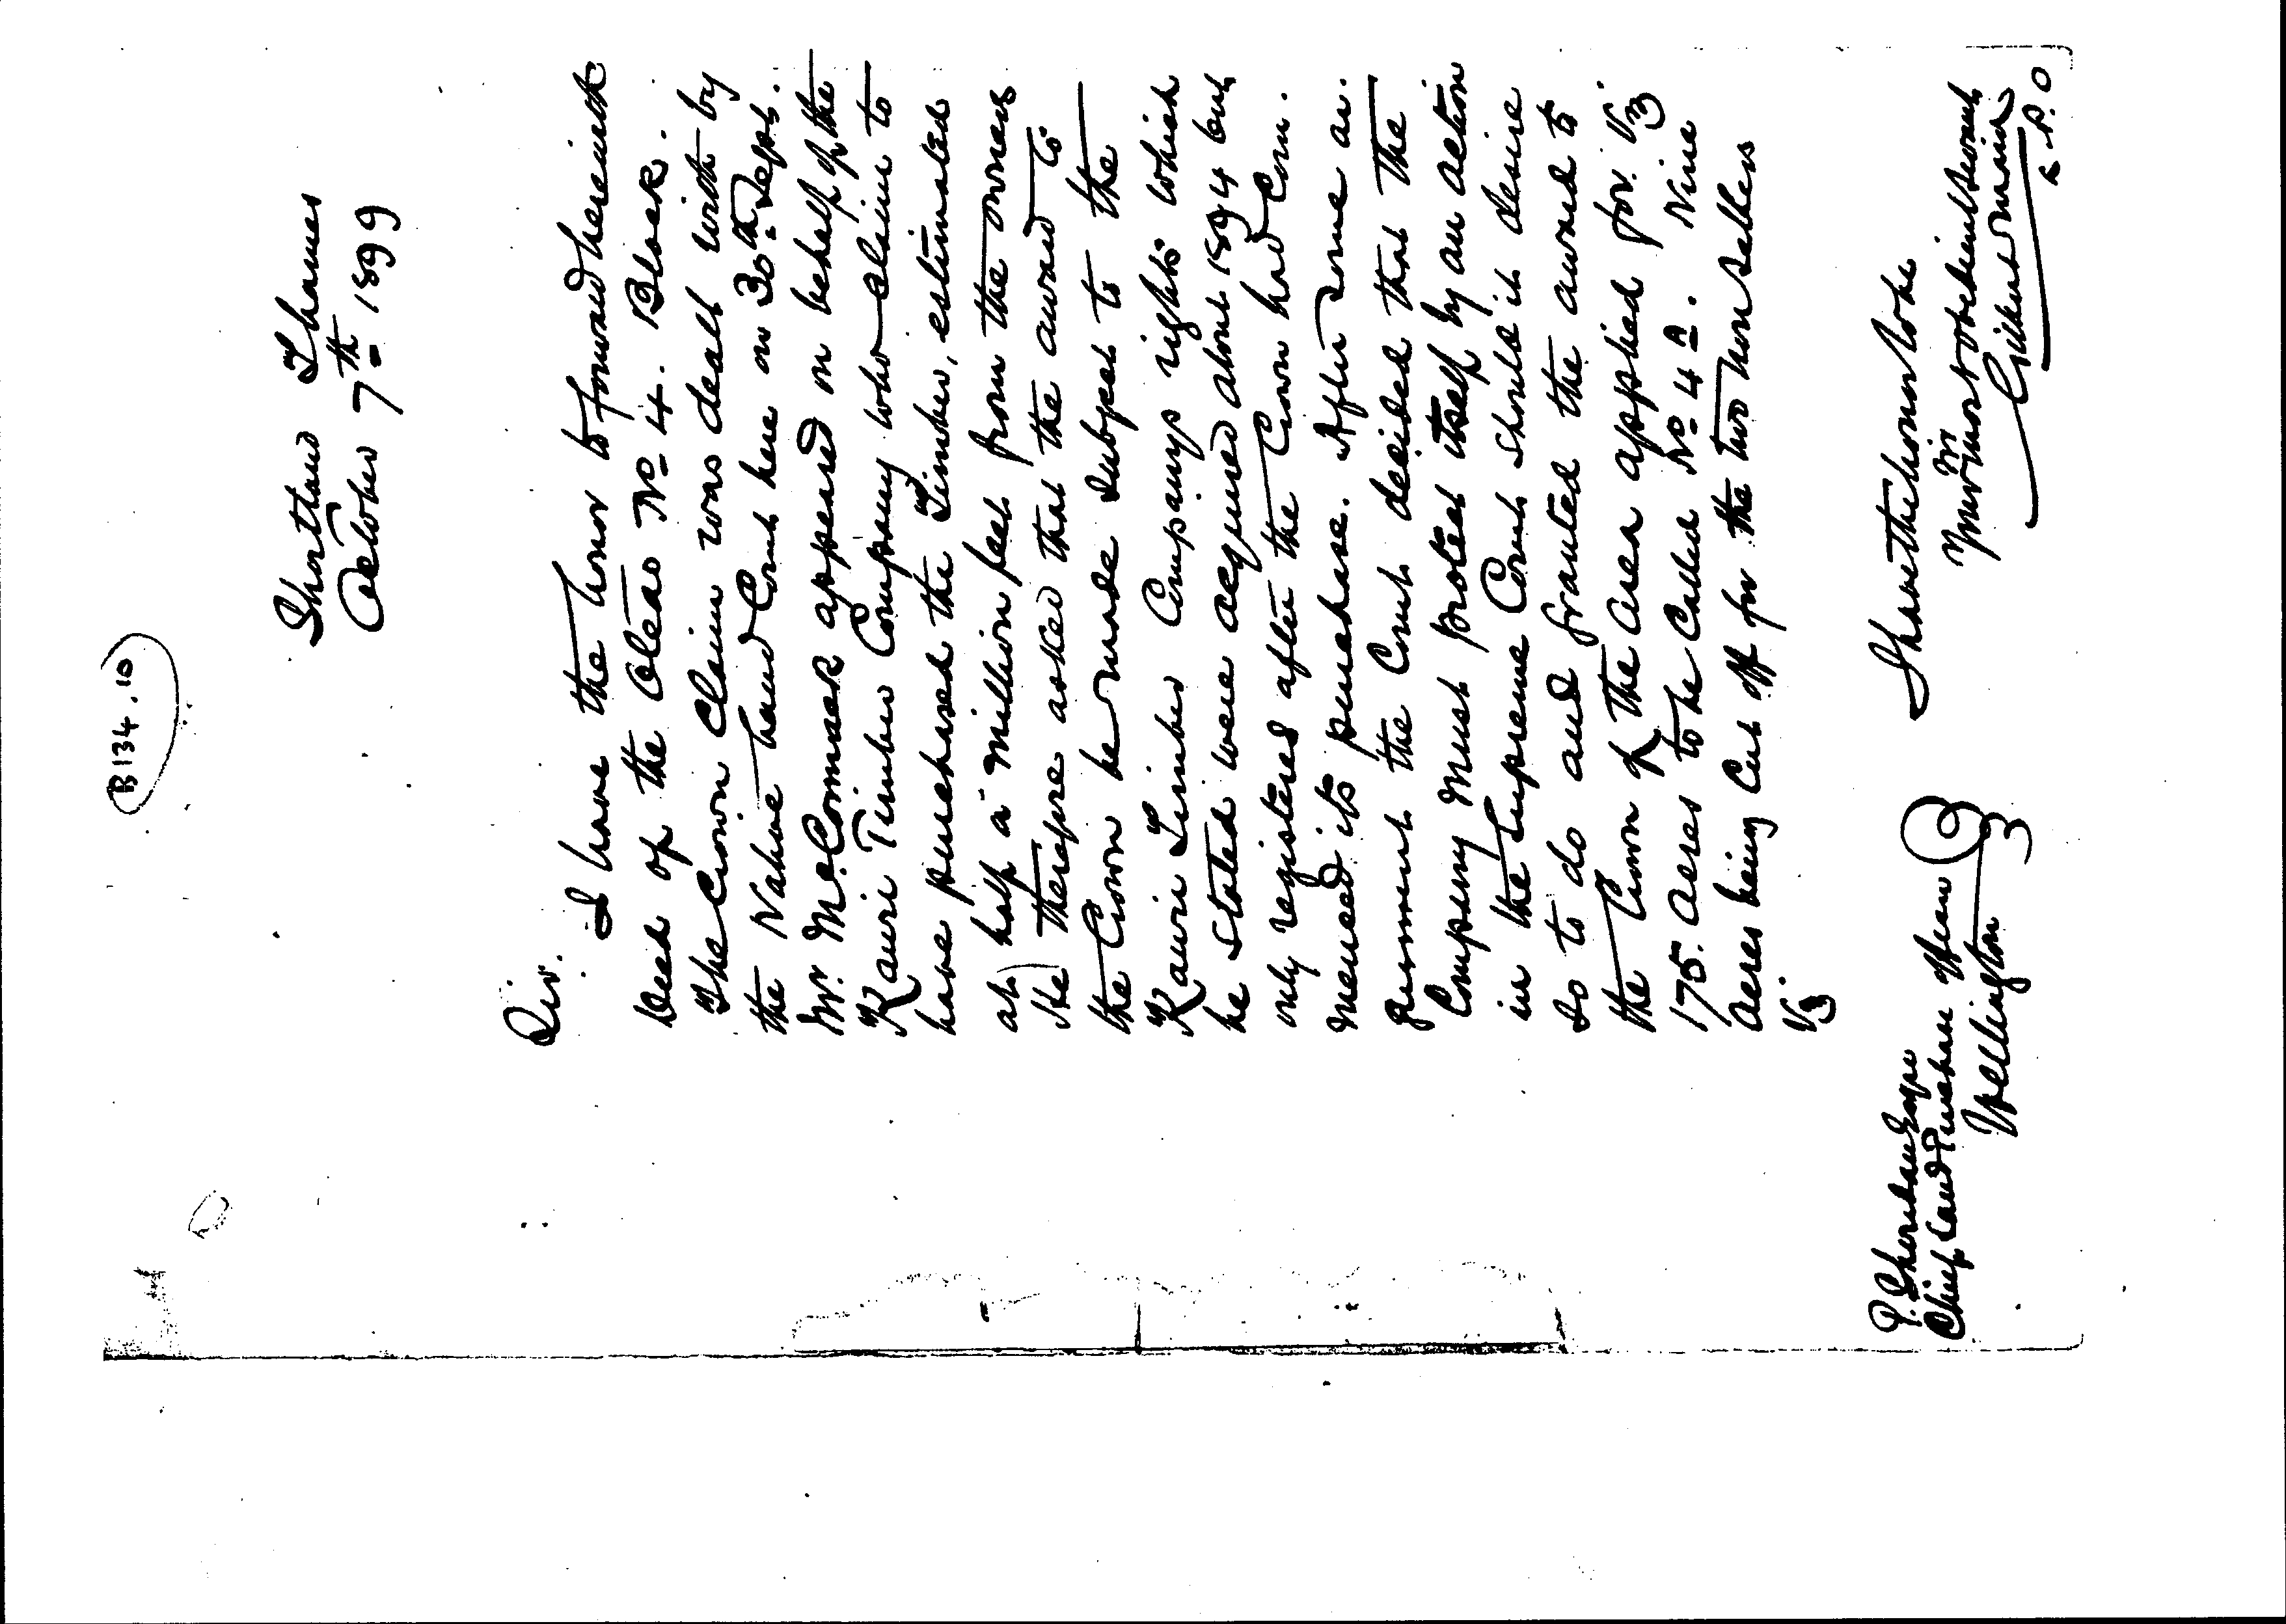 B134.10
Shortland Thames
October 7th 1899
Sir.
I have the honor to forward herewith
Deed of the Oleao No 4. Block.
The Crown Claim was dealt with by
the Native Land Court here on 30th Sept.
Mr. McCormack appeared on behalf of the
Kauri Timber Company who claim to
have purchased the Timber, estimated
at half a million feet from the owners
He therefore asked that the award to
the Crown be made subject to the
Kauri Timber Companys rights which
he stated were acquired about 1894 but
only registered after the Crown had Com.
menced its purchase. After some ar.
gument the Court decided that the
Company must protect itself by an action
in the Supreme Court should it desire
so to do and granted the award to
the Crown of the area applied for. Viz
175. acres to be Called No 4A. Nine
acres being Cut off for the two non sellers
Viz
I have the honor to be
Sir
Your most obedient servant
Gilbert Mair
L.P.O
P. Sheridan Esqre
Chief Land Purchase Officer
Wellington